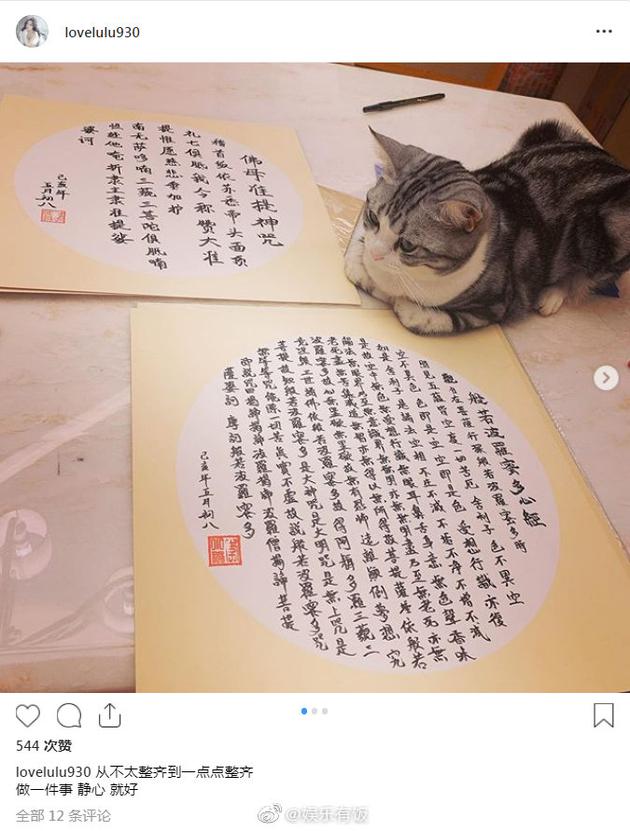 lovelulu930
佛母准提神咒
稽首皈依苏悉帝头面顶
礼七俱胝我今称赞大准
提惟愿慈悲垂加护
南无萨哆喃三藐三菩陀俱胝喃
怛姪他唵折隶主隶准提娑
婆诃
己亥年
五月初八
般若波羅蜜多心經
觀自在菩薩行深般若波羅蜜多時
照見五蘊皆空度一切苦厄舍利子色不異空
空不異色色即是空空即是色受想行識亦復
如是舍利子是諸法空相不生不滅不垢不淨不增不減
是故空中無色無受想行識無眼耳鼻舌身意無色聲香味
觸法無眼界乃至無意識界無無明亦無無明盡乃至無老死亦無
老死盡無苦集滅道無智亦無得以無所得故菩提薩埵依般若
波羅蜜多故心無罣礙無罣礙故無有恐怖遠離顛倒夢想究
竟涅槃三世諸佛依般若波羅蜜多故得阿耨多羅三藐三
菩提故知般若波羅蜜多是大神咒是大明咒是無上咒是
無等等咒能除一切苦真實不虛故說般若波羅蜜多咒
即說咒曰揭諦揭諦波羅揭諦波羅僧揭諦菩提
薩婆訶 摩訶般若波羅蜜多
己亥年五月初八
544 次赞
lovelulu930 从不太整齐到一点点整齐
做一件事 静心 就好
全部 12 条评论
@娱乐有饭